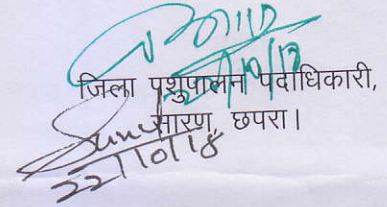 जिला पशुपालन पदाधिकारी,
सारण, छपरा।
22/10/18